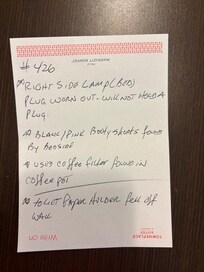 MARRIOTT BONVOY
#426
*RIGHT SIDE LAMP (BED)
PLUG WORN OUT - WILL NOT HOLD A
PLUG.
* BLACK/PINK BODY SHORTS FOUND
BY BEDSIDE
* USED COFFEE FILTER FOUND IN
COFFEE POT
* TOILET PAPER HOLDER FELL OFF
WALL
TOWNEPLACE
SUITES